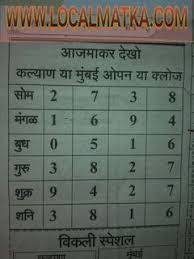 WWW.LOCALMATKA.COM
आजमाकर देखो
कल्याण या मुंबई ओपन या क्लोज
सोम 2 7 3 8
मंगळ 1 6 9 4
बुध 0 5 1 6
गुरू 3 8 2 7
शुक्र 9 4 2 7
शनि 3 8 1 6
विकली स्पेशल